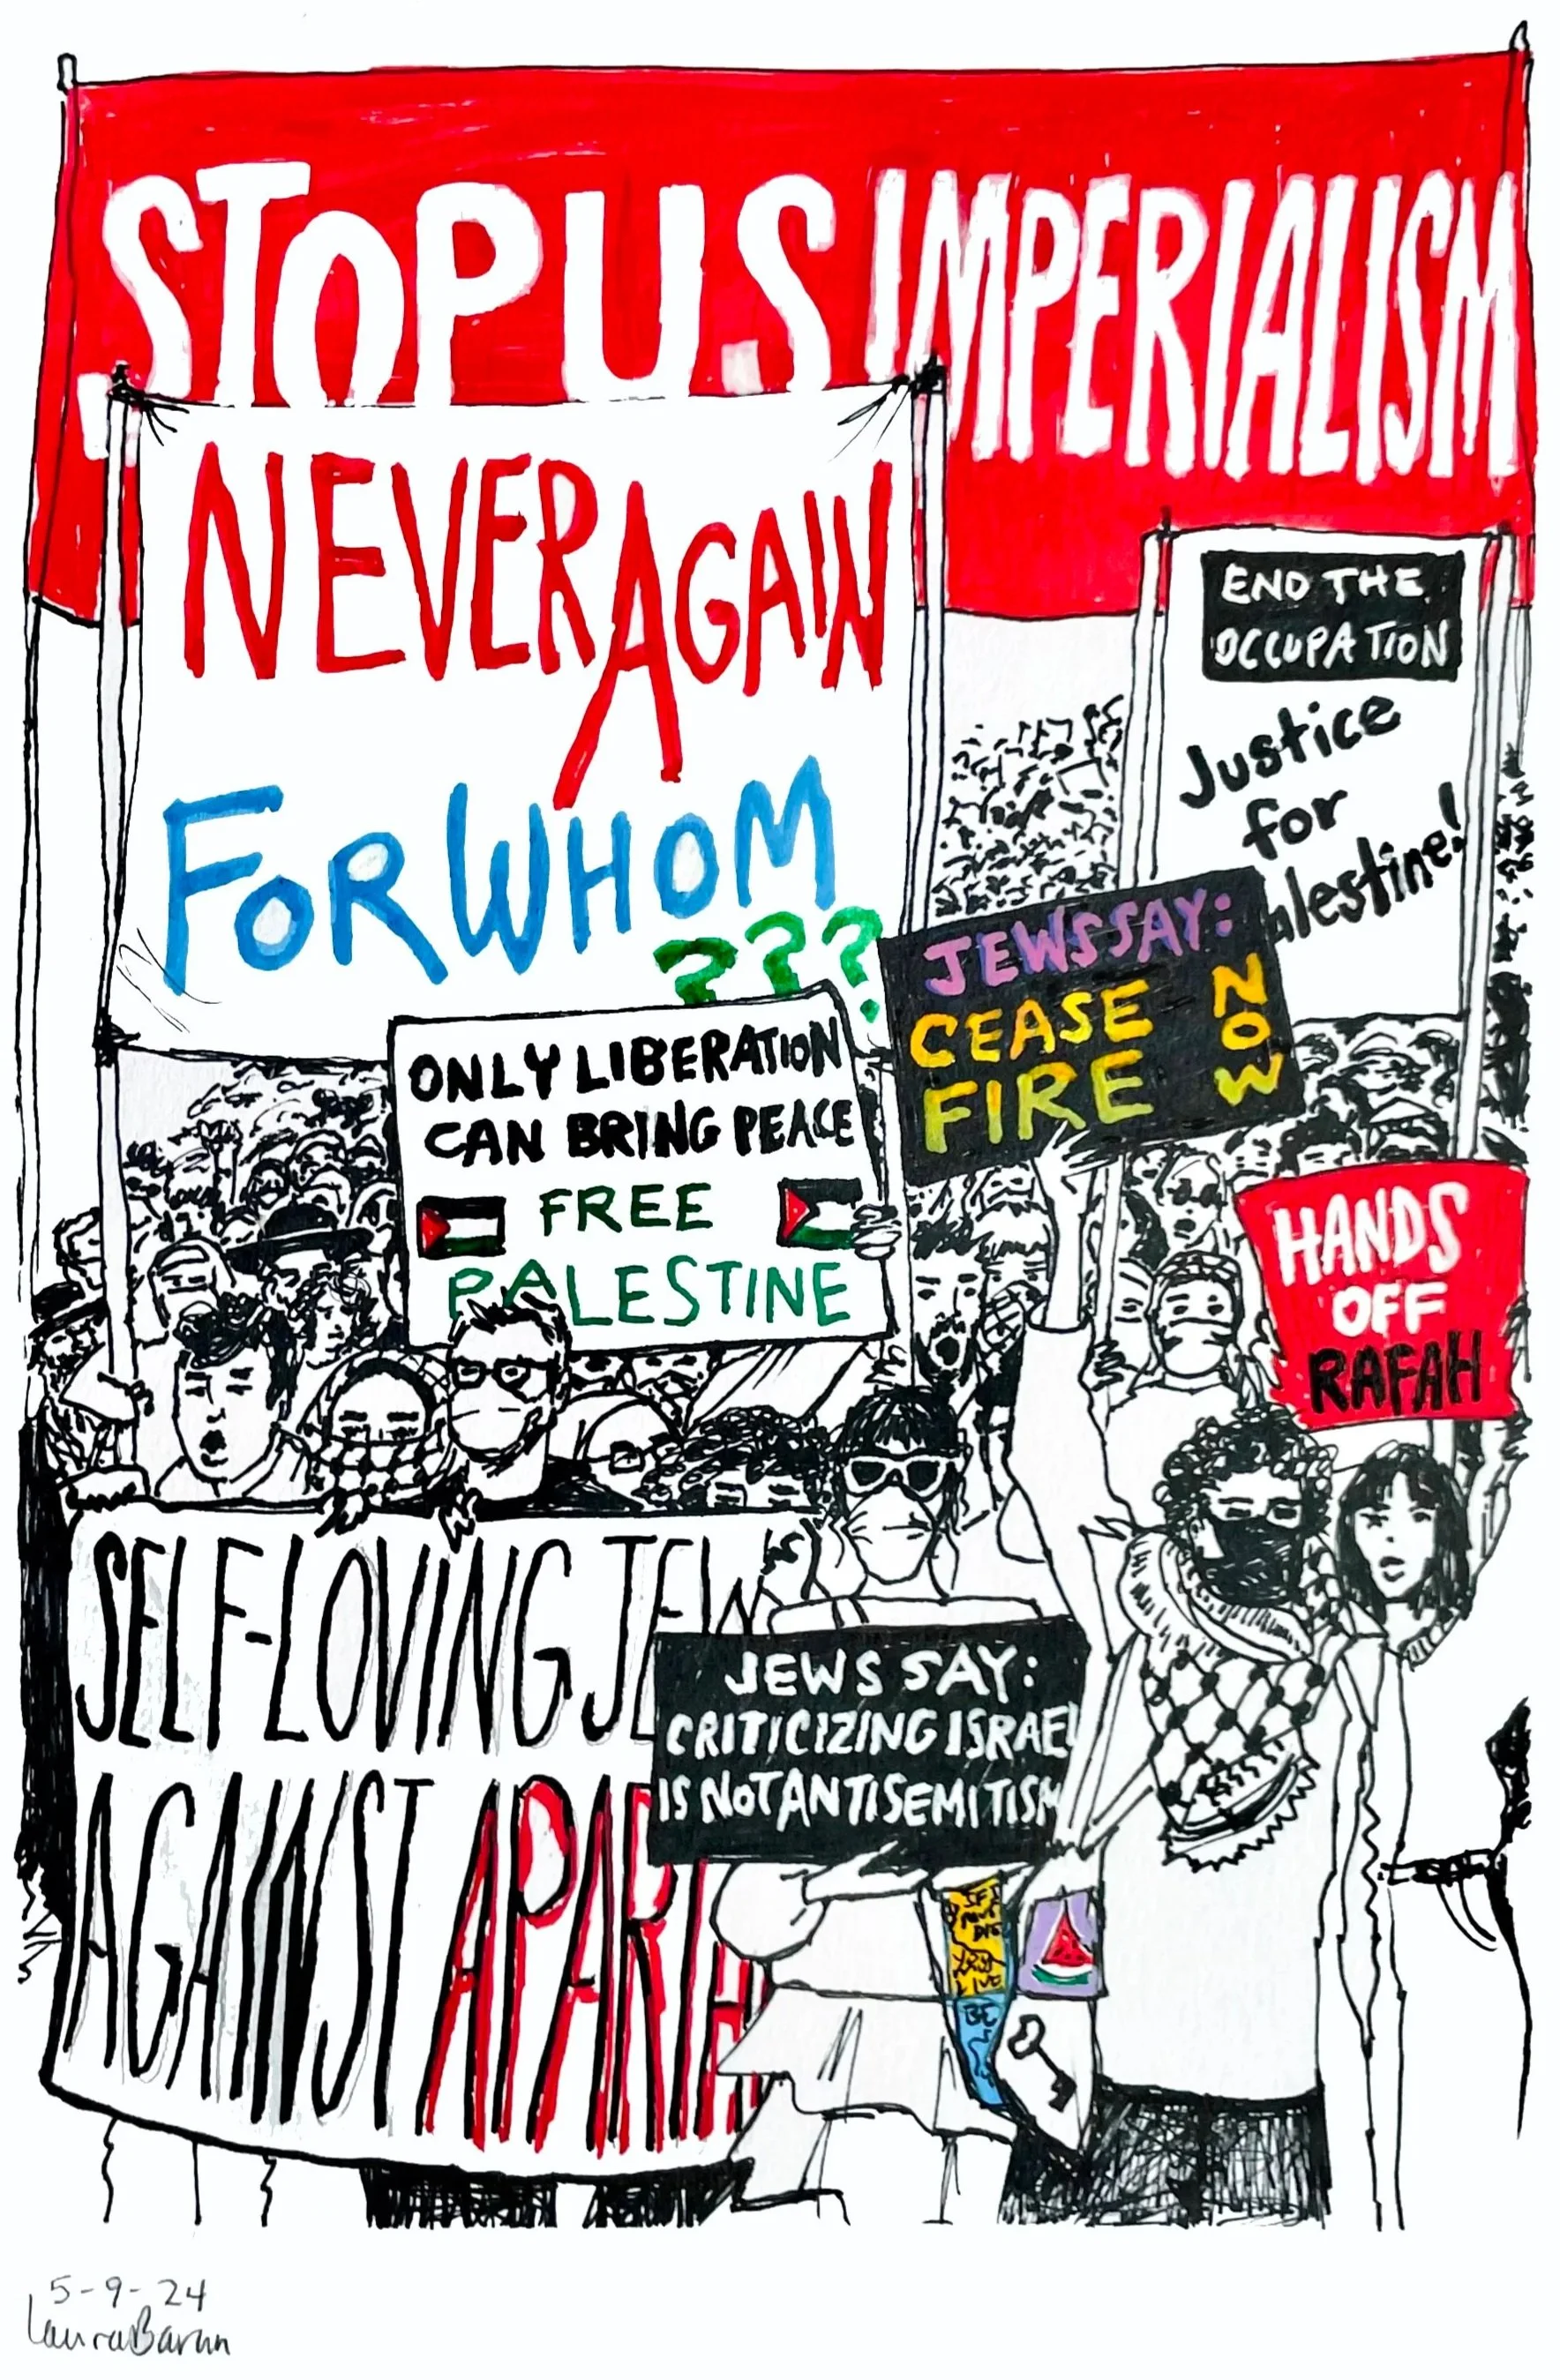 STOP U.S IMPERIALISM
NEVER AGAIN
FOR WHOM
???
END THE
OCCUPATION
Justice
for
alestine!
JEWS SAY:
CEASE
FIRE
NOW
ONLY LIBERATION
CAN BRING PEACE
FREE
PALESTINE
HANDS
OFF
RAFAH
SELF-LOVING JEWS
AGAINST APARTH
JEWS SAY:
CRITICIZING ISRAEL
IS NOT ANTISEMITISM
IF I
MUST
DIE
LIVE
BE
5-9-24
Laura Barun